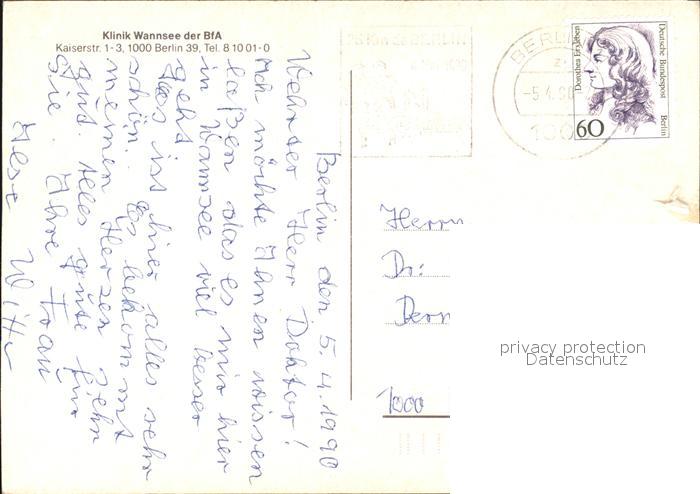 Klinik Wannsee der BfA
Kaiserstr. 1-3, 1000 Berlin 39, Tel. 8 10 01-0
Berlin den 5.4.1990
Wehrter Herr Doktor!
Ich möchte Ihnen wissen
laßen das es mir hier
in Wannsee viel besser
geht
Es ist hier alles sehr
schön. Es bekommt
meinen Herzen sehr
gut. Alles gute für
Sie. Ihre Frau
Witt
BERLIN
-5.4.90
1000
Deutsche Bundespost
Berlin
Dorothea Erxleben
60
Herrn
Dr.
Bern
1000
privacy protection
Datenschutz